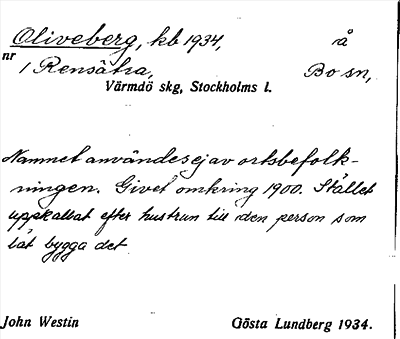 Oliveberg, kb 1934, rå
nr
1 Rensätra, Bo sn,
Värmdö skg, Stockholms l.
Namnet användes ej av ortsbefolk-
ningen. Givet omkring 1900. Stället
uppkallat efter hustrun till den person som
lät bygga det
John Westin Gösta Lundberg 1934.